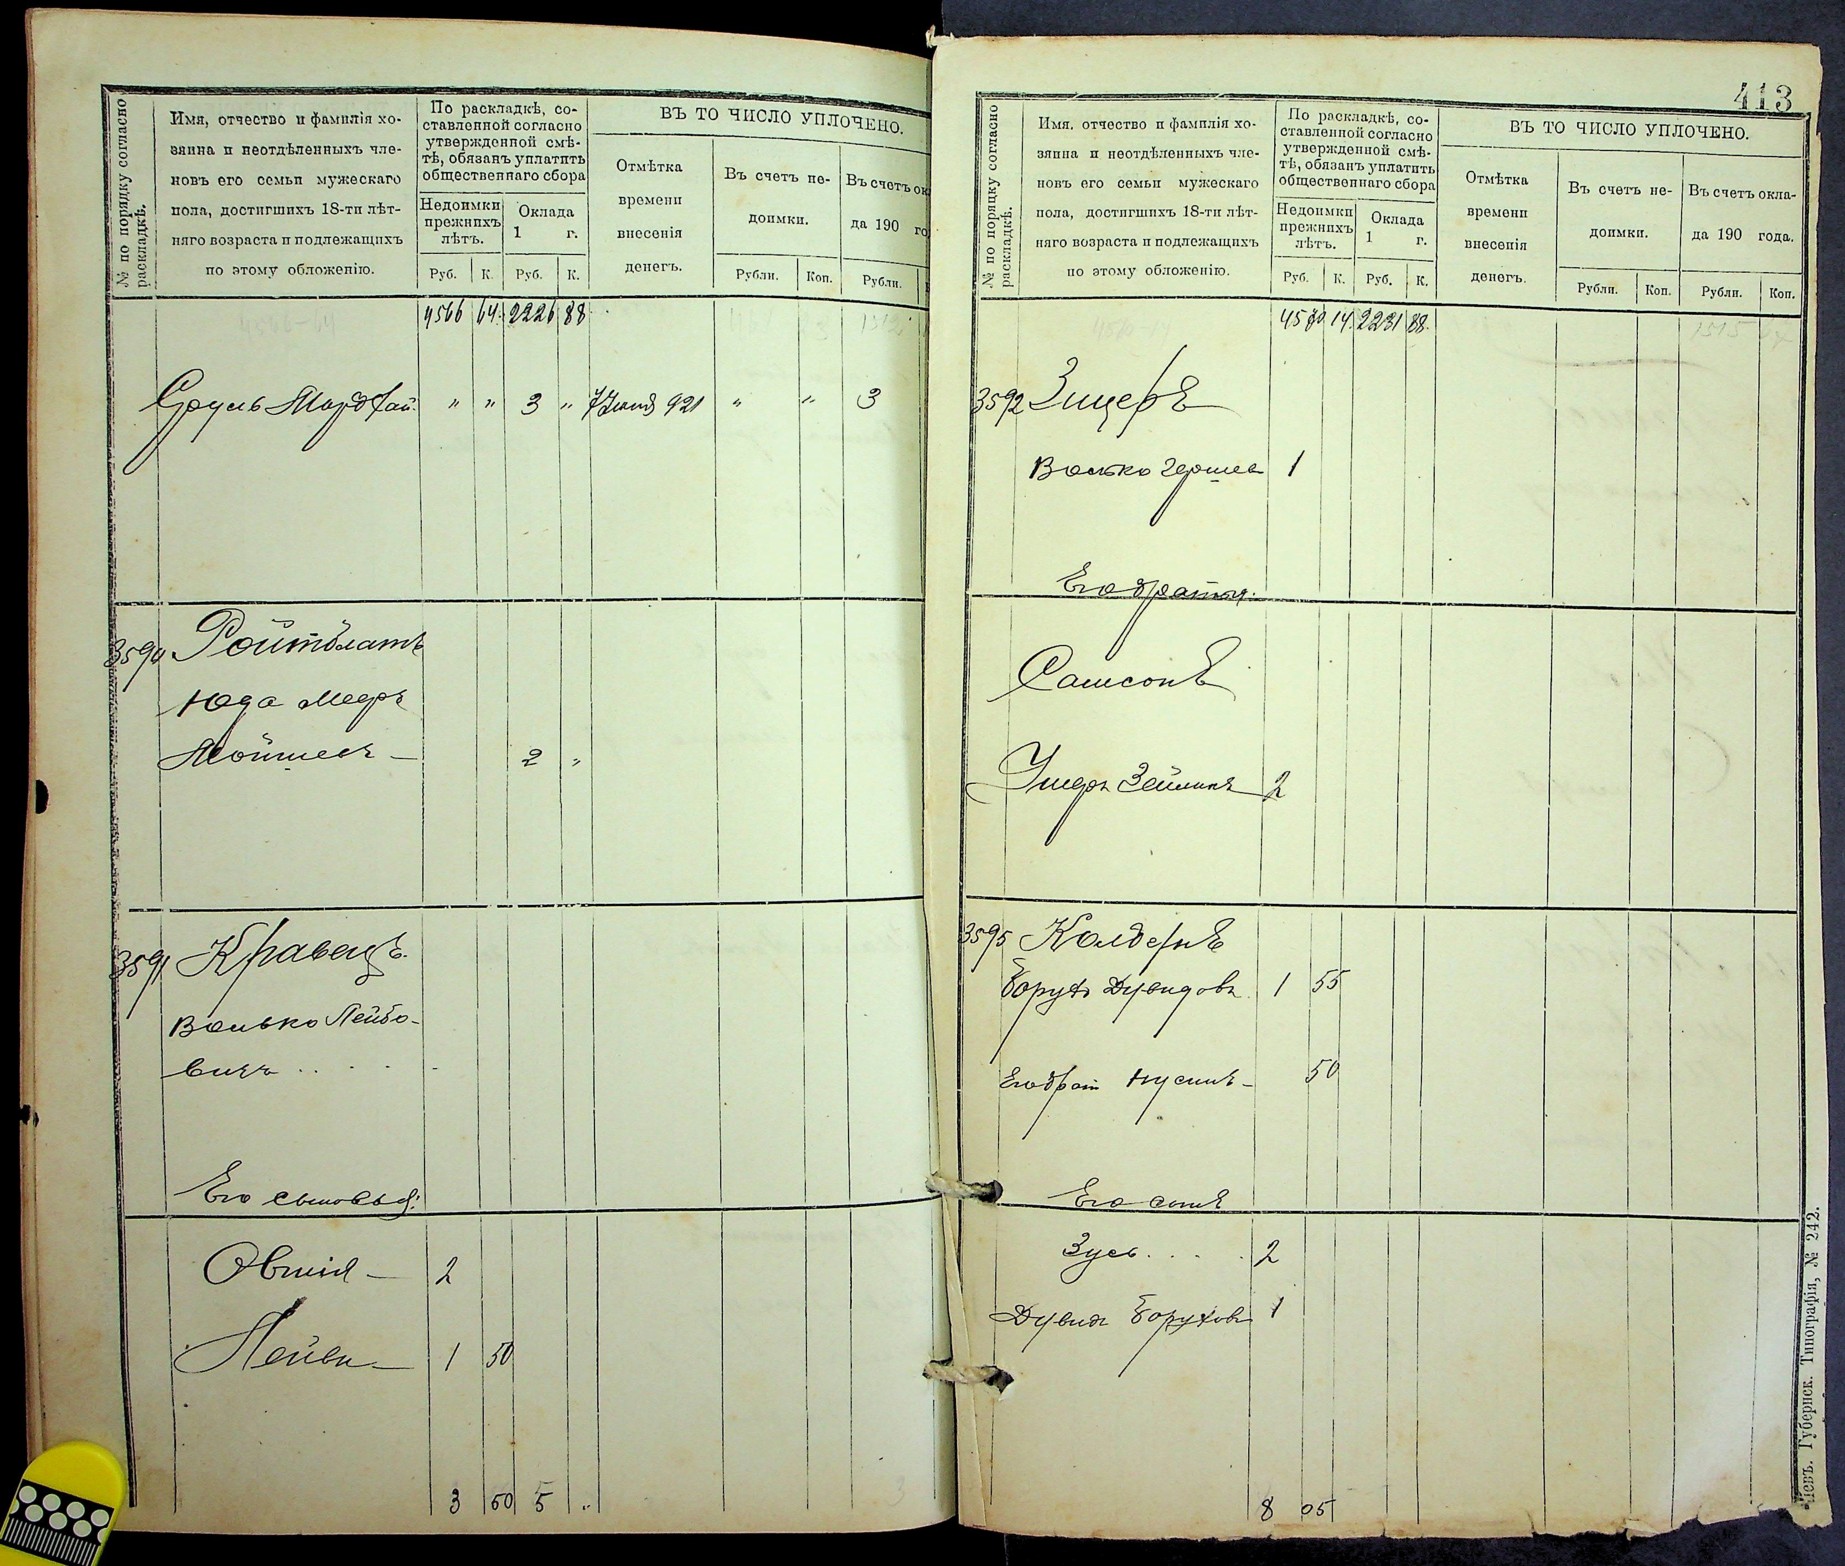 № по порядку согласно раскладкѣ.
Имя, отчество и фамилія хо-
зяина и неотдѣленныхъ чле-
новъ его семьи мужескаго
пола, достигшихъ 18-ти лѣт-
няго возраста и подлежащихъ
по этому обложенію.
По раскладкѣ, со-
ставленной согласно
утвержденной смѣ-
тѣ, обязанъ уплатить
общественнаго сбора
Недоимки
прежнихъ
лѣтъ.
Оклада
1 г.
Руб. К. Руб. К.
ВЪ ТО ЧИСЛО УПЛОЧЕНО.
Отмѣтка
времени
внесенія
денегъ.
Въ счетъ не-
доимки.
Рубли. Коп.
Въ счетъ ок
да 190 го
Рубли.
4566 64 2226 88
Сруль Мордхай. " " 3 " 7 Іюня 921 " " 3
3590 Ройтблатъ
Юда Мееръ
Мойшев. — 2 "
3591 Кравецъ.
Волько Лейбо-
вичъ
Его сыновья:
Овшія — 2
Лейви — 1 50
3 50 5 "
413
№ по порядку согласно раскладкѣ.
Имя, отчество и фамилія хо-
зяина и неотдѣленныхъ чле-
новъ его семьи мужескаго
пола, достигшихъ 18-ти лѣт-
няго возраста и подлежащихъ
по этому обложенію.
По раскладкѣ, со-
ставленной согласно
утвержденной смѣ-
тѣ, обязанъ уплатить
общественнаго сбора
Недоимки
прежнихъ
лѣтъ.
Оклада
1 г.
Руб. К. Руб. К.
ВЪ ТО ЧИСЛО УПЛОЧЕНО.
Отмѣтка
времени
внесенія
денегъ.
Въ счетъ не-
доимки.
Рубли. Коп.
Въ счетъ окла-
да 190 года.
Рубли. Коп.
4570 14 2231 88
3592 Зицеръ
Волько Гершев 1
Его братья:
Самсонъ
Ушеръ Зейликъ 2
3595 Колдеръ
Борухъ Дувидовъ 1 55
Его брат Нусинъ — 50
Его сынъ
Зусь . . . . 2
Дувидъ Боруховъ 1
8 05
Кіевъ. Губернск. Типографія, № 242.